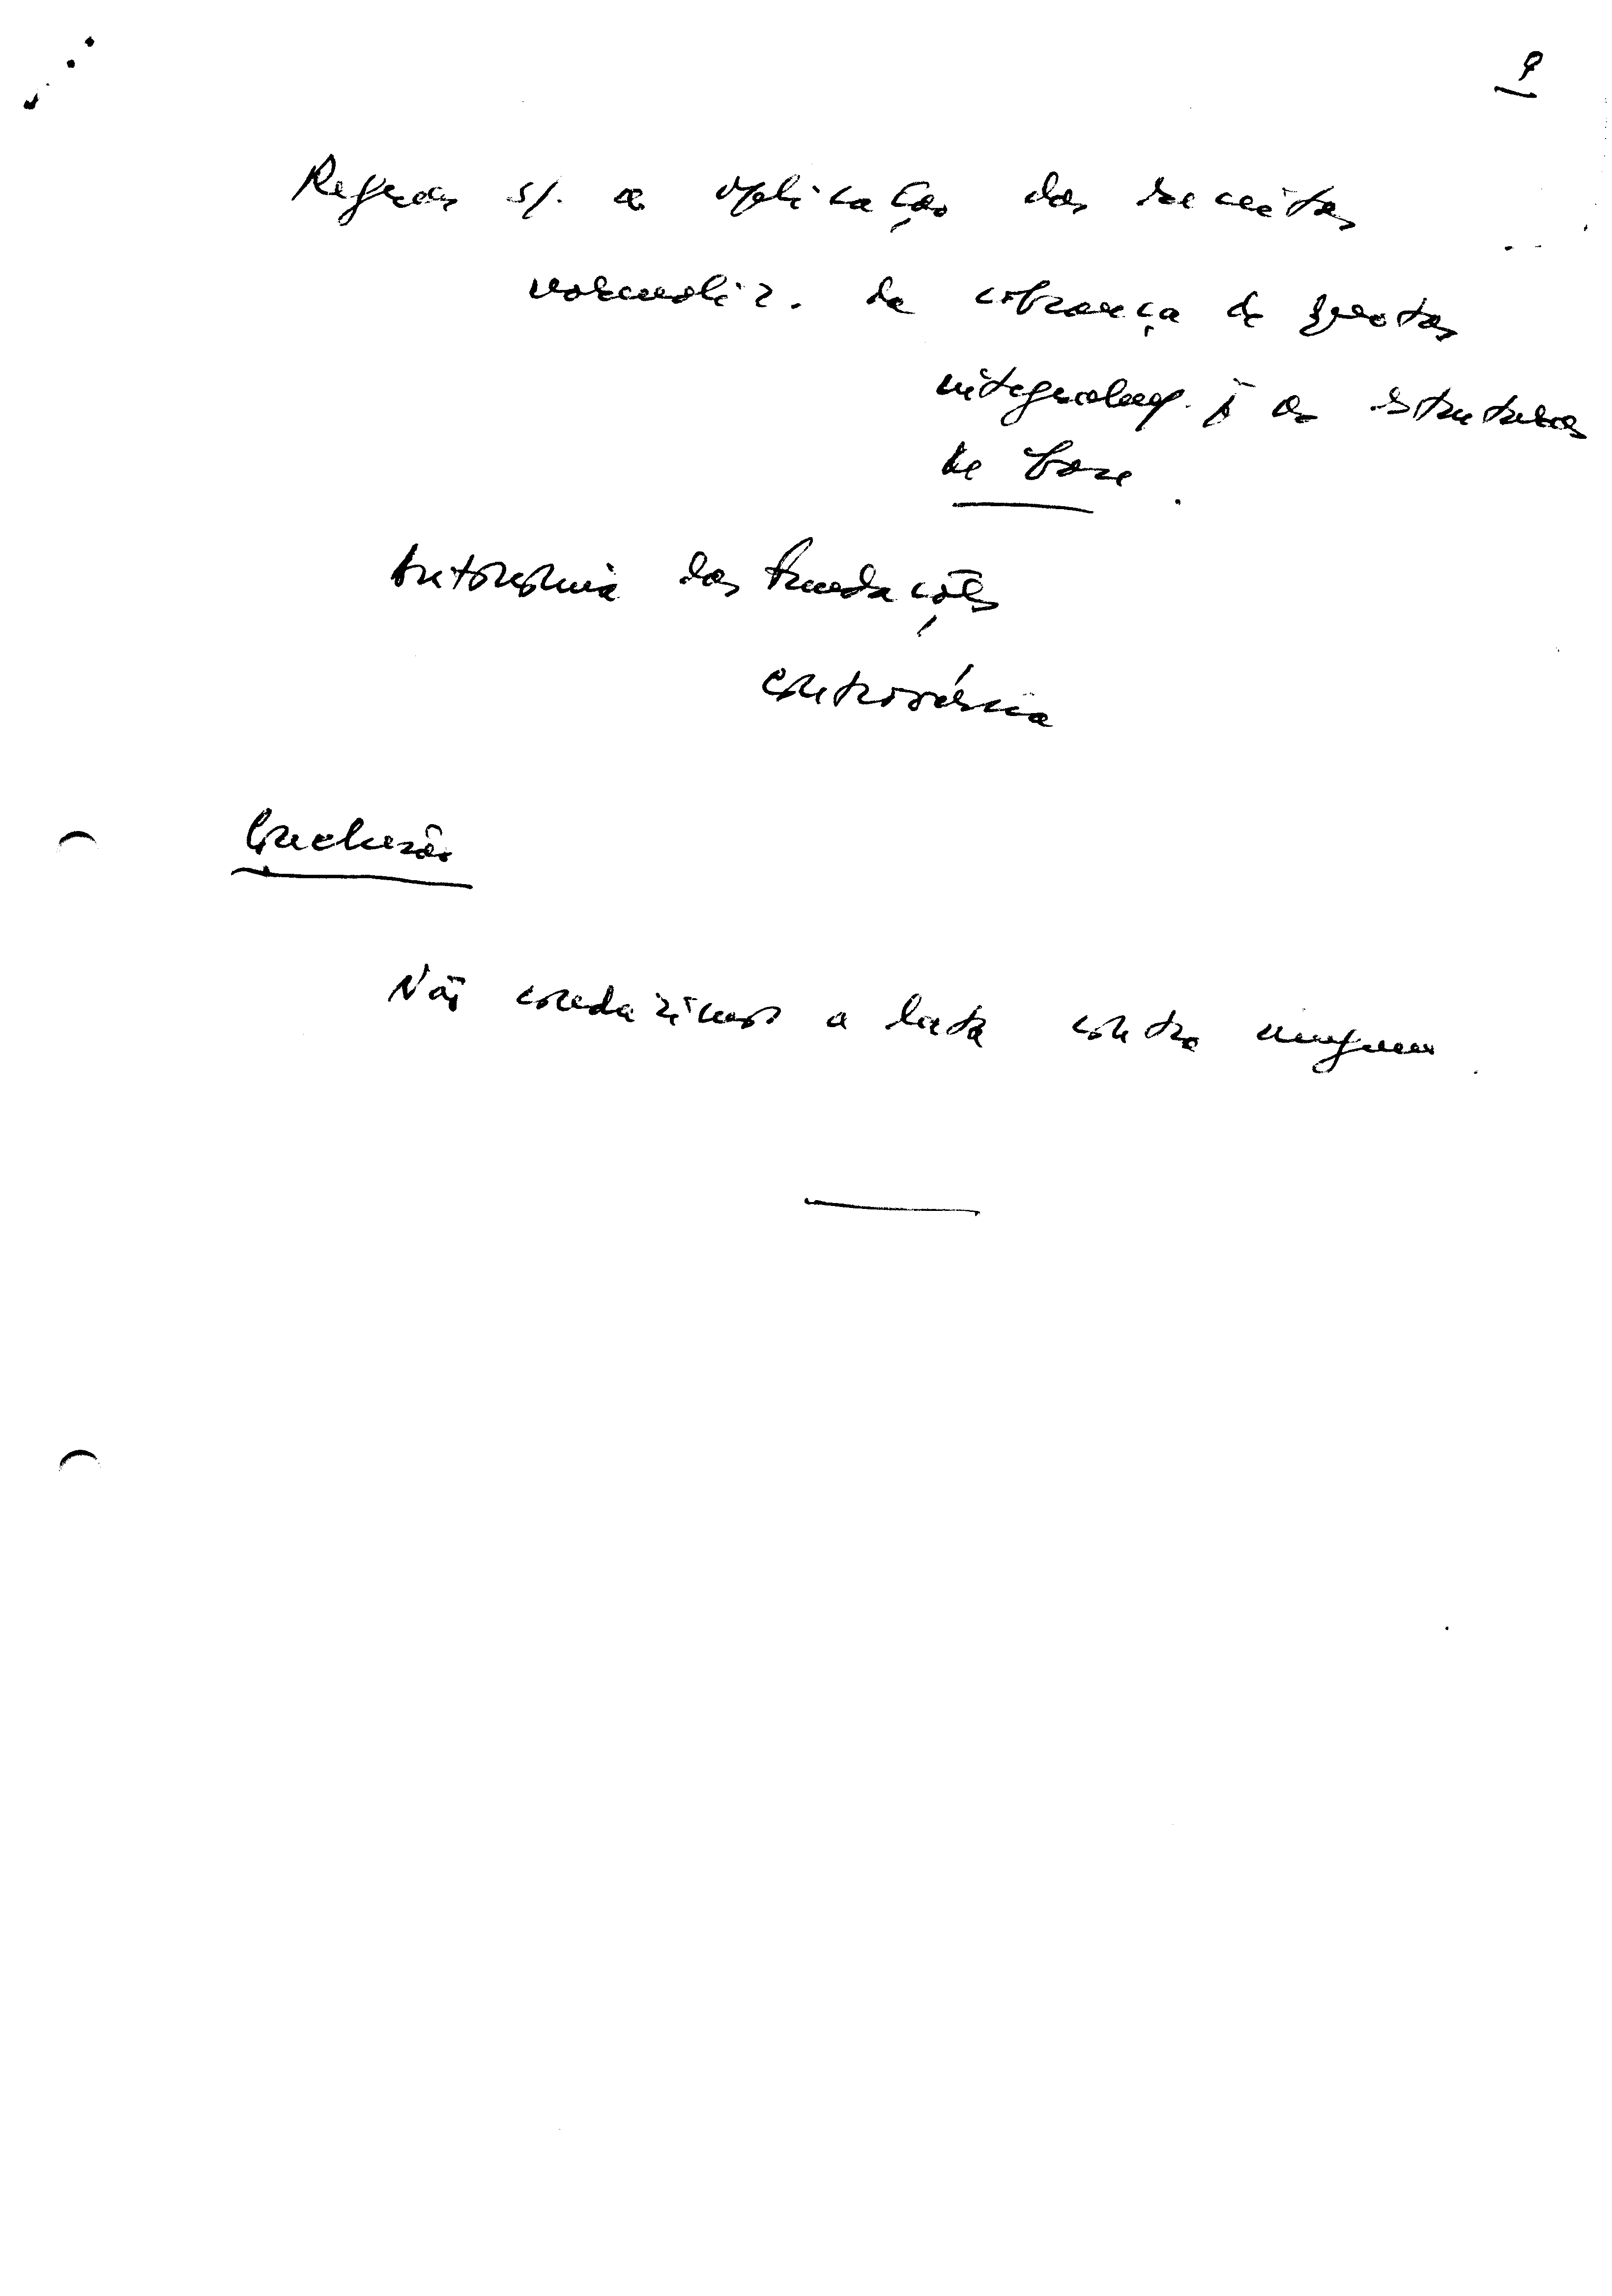 9
Regras s/. a aplicação das receitas
normaliz. da cobrança de quotas
integralm. p/ as estruturas
de base.
Autonomia das Fundações
controvérsia
Conclusão
Não conduzimos a luta contra ninguem.